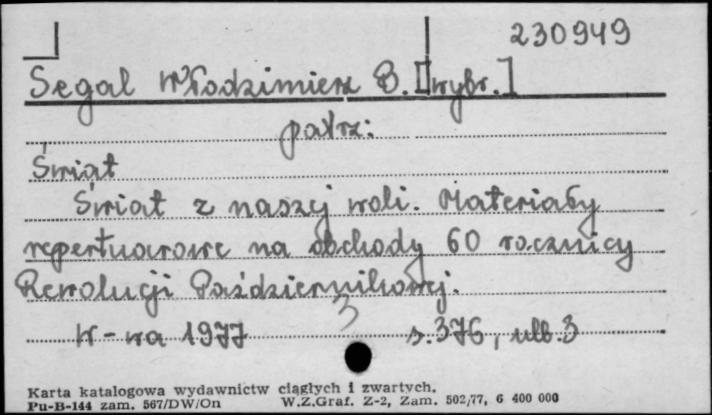 230949
Segal Włodzimierz B. [wybr.]
patrz:
Świat
Świat z naszej woli. Materiały
repertuarowe na obchody 60 rocznicy
Rewolucji Październikowej.
W-wa 1977 3 s. 376, nlb. 3
Karta katalogowa wydawnictw ciągłych i zwartych.
Pu-B-144 zam. 567/DW/On W.Z.Graf. Z-2, Zam. 502/77, 6 400 000